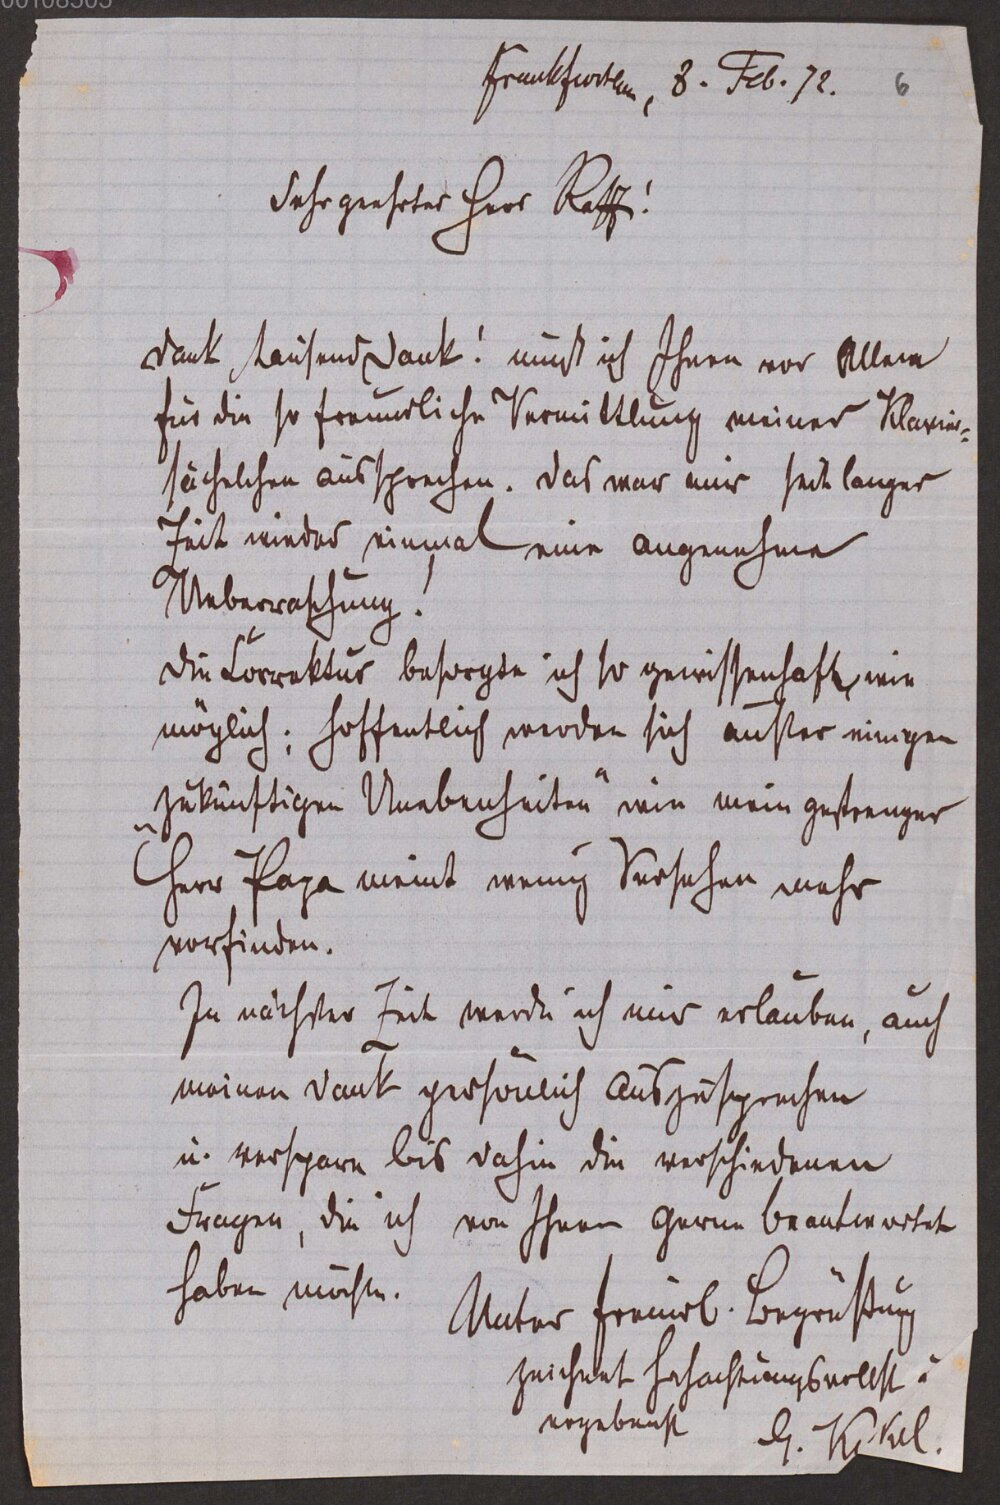 00108505
Frankfurt a/m, 8. Feb. 72.
6
Sehr geehrter Herr Raff!
Dank, tausend Dank! muß ich Ihnen vor Allem
für die so freundliche Vermittlung meiner Klavier-
sächelchen aussprechen. Das war mir seit langer
Zeit wieder einmal eine angenehme
Ueberraschung!
Die Correktur besorgte ich so gewissenhaft, wie
möglich; hoffentlich werden sich außer einigen
zukünftigen Unebenheiten" wie mein gestrenger
"Herr Papa meint wenig Versehen mehr
vorfinden.
In nächster Zeit werde ich mir erlauben, auch
meinen Dank persönlich auszusprechen
u. verspare bis dahin die verschiedenen
Fragen, die ich von Ihnen gerne beantwortet
haben möchte.
Unter freundl. Begrüßung
zeichnet hochachtungsvollst u
ergebenst